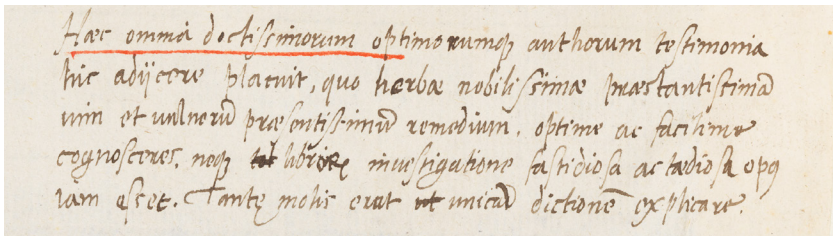 Haec omnia doctissimorum optimorumq; authorum testimonia
hic adijcere placuit, quo herbae nobilissimae praestantissimā
uim et vulnerū praesentissimū remedium, optime ac facilime
cognosceres, neq; librorū inuestigatione fastidiosa ac taediosa opus
iam esset. Tantę molis erat unicā dictionē explicare.